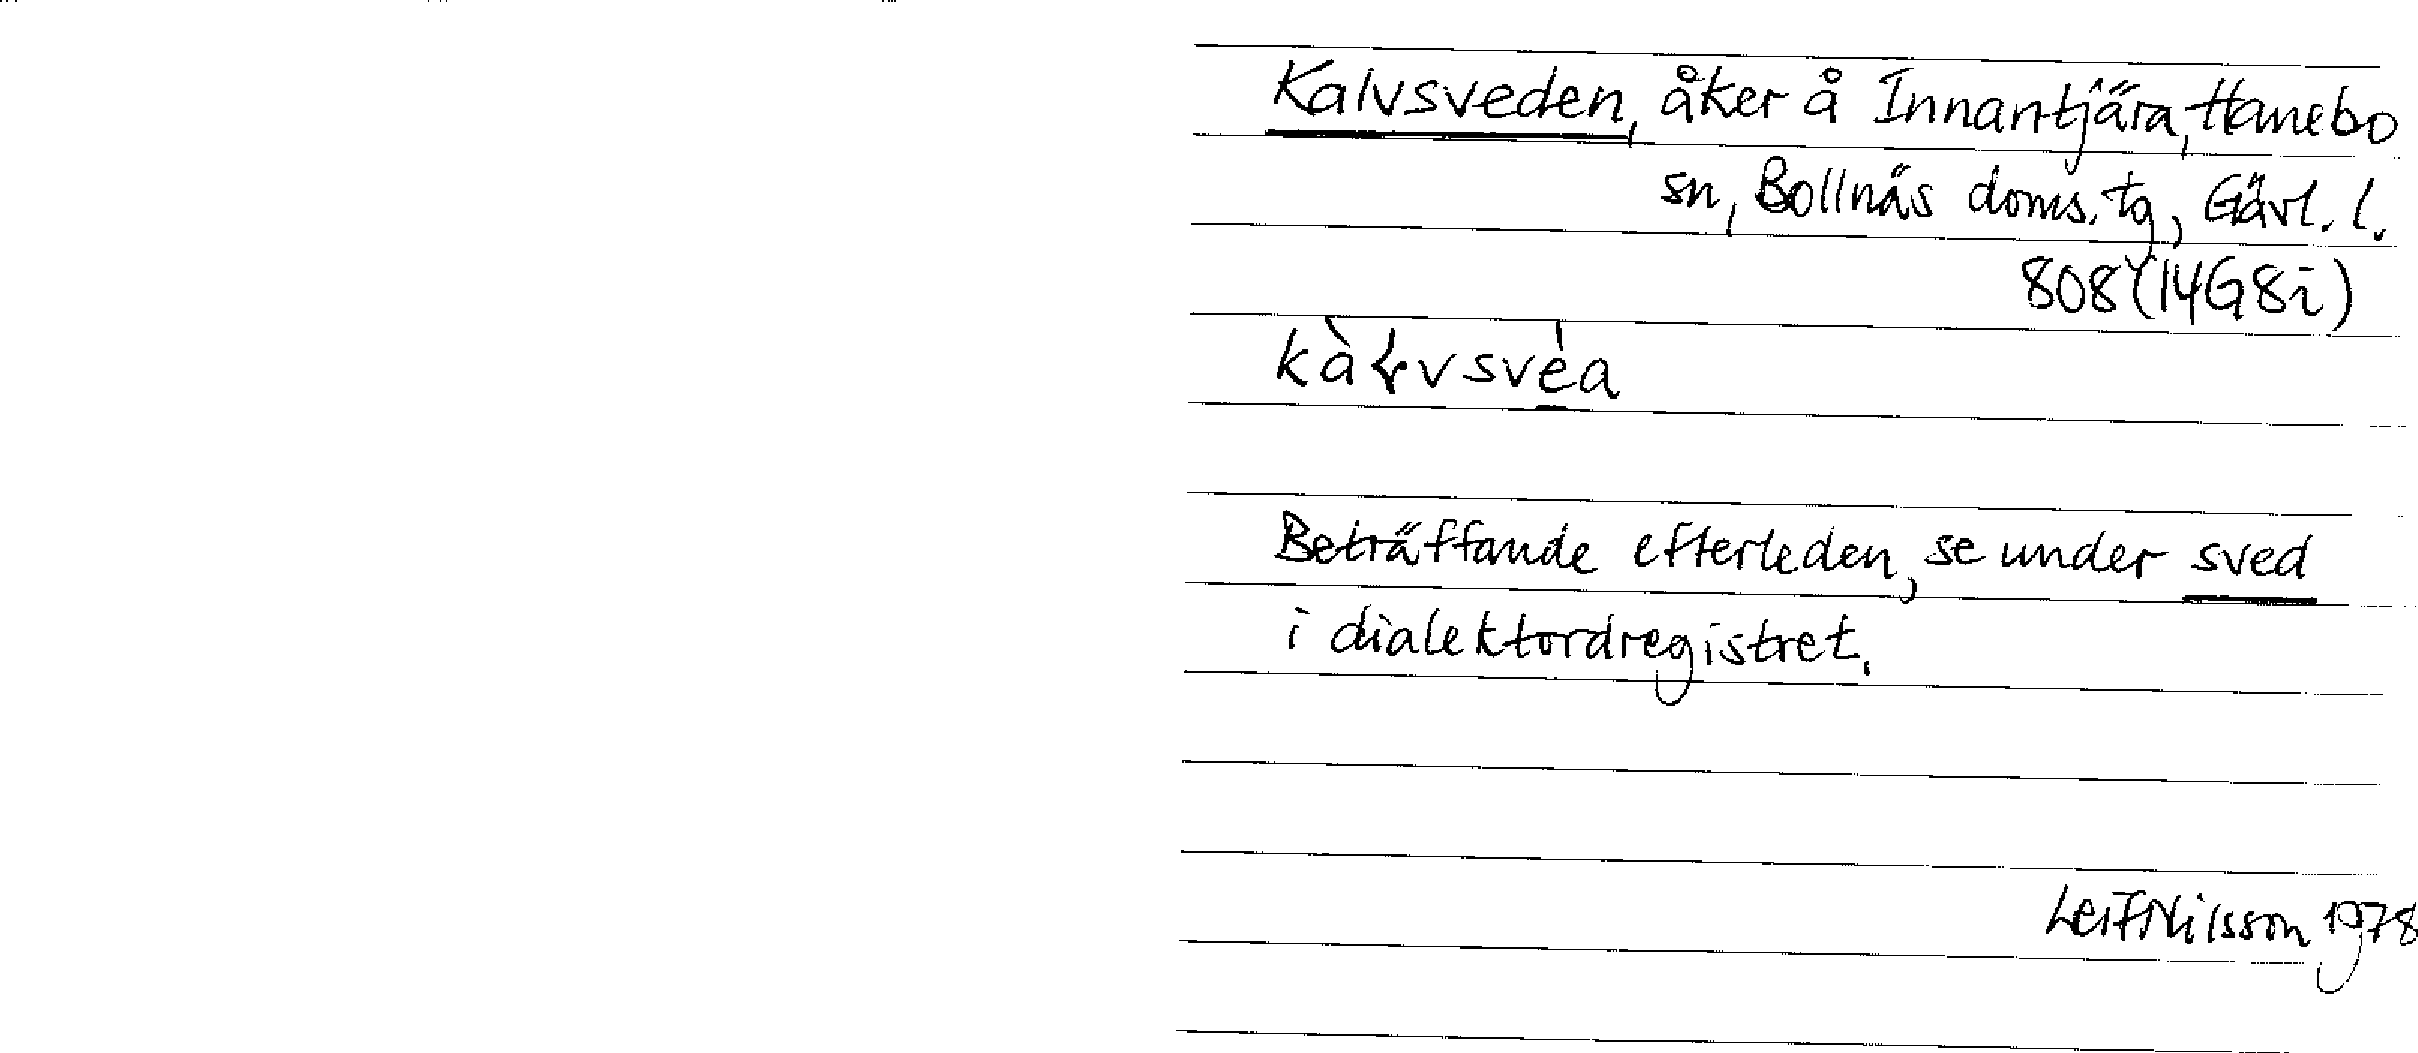 Kalvsveden, åker å Innantjära, Hanebo
sn, Bollnäs doms. tg, Gävl. l.
808 (14G8i)
kàɫvsvèa
Beträffande efterleden, se under sved
i dialektordregistret.
Leif Nilsson 1978